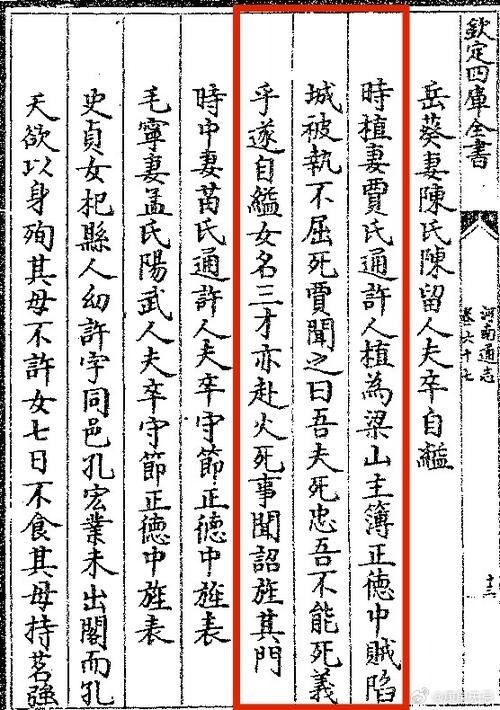 欽定四庫全書
河南通志
卷六十七
十三
岳葵妻陳氏陳留人夫卒自縊
時植妻賈氏通許人植為梁山主簿正德中賊陷
城被執不屈死賈聞之曰吾夫死忠吾不能死義
乎遂自縊女名三才亦赴火死事聞詔旌其門
時中妻苗氏通許人夫卒守節正德中旌表
毛寧妻孟氏陽武人夫卒守節正德中旌表
史貞女杞縣人幼許字同邑孔宏業未出閣而孔
夭欲以身殉其母不許女七日不食其母持茗強